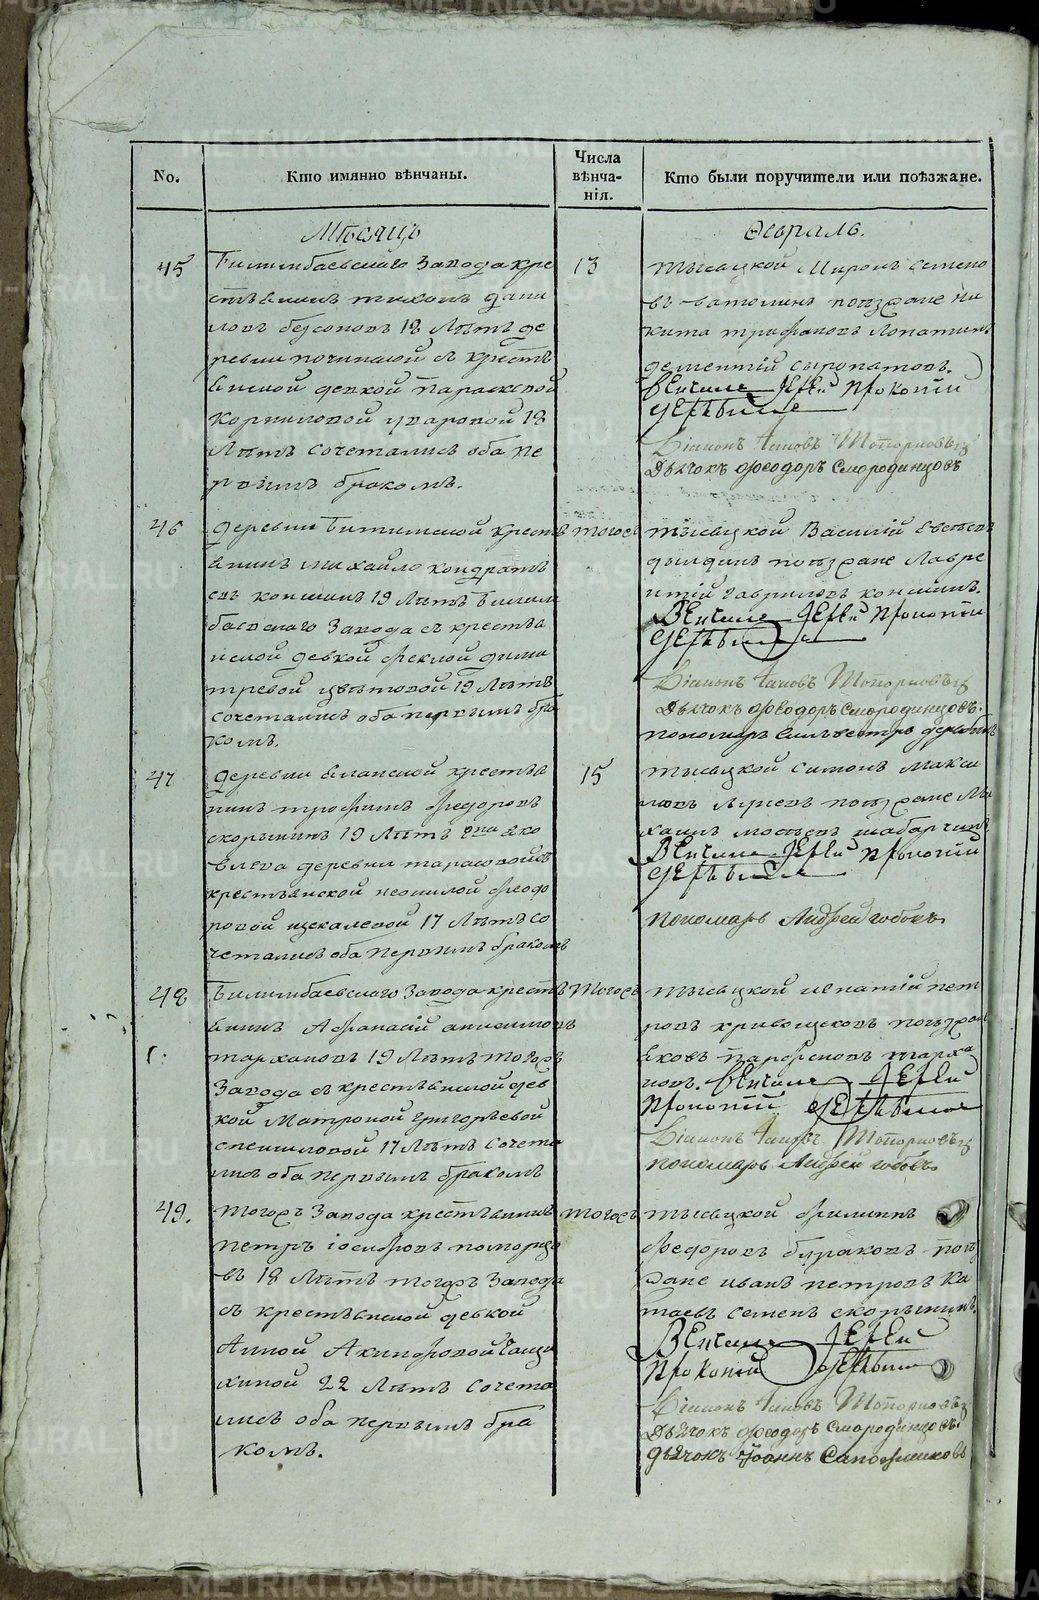 No.
Кто имянно вѣнчаны.
Числа
вѣнча-
нія.
Кто были поручители или поѣзжане.
Мѣсяцъ
Февраль.
45
Билимбаевскаго Завода кре
стьянинъ тихонъ дани
ловъ безсоновъ 18 Лѣтъ де
ревни починкой съ крестъ
янской девкой Параскевой
Корниловой уваровой 18
Лѣтъ сочетались оба пе
рвымъ бракомъ.
13
тысяцкой Миронъ семено
въ ватолинъ поѣзжане ни
кита трифановъ Лопатинъ
дементій сыропатовъ.
Венчалъ Іерей Прокопій
Дерябинъ
Діаконъ Іаковъ Топорковъ
Дьячокъ Ѳеодоръ Смородинцовъ
46
деревни Битимской крестъ
янинъ михайло кондратъ
евъ коншинъ 19 Лѣтъ Билим
баевскаго Завода съ крестья
нской девкой феклой дими
тревой цвѣтовой 19 Лѣтъ
сочетались оба первымъ бра
комъ.
тогожъ
тысяцкой Василій Евсѣевъ
дылдинъ поѣзжане Лавре
нтій гавриловъ коншинъ.
Венчалъ Іерей Прокопій
Дерябинъ
Діаконъ Іаковъ Топорковъ
Дьячокъ Ѳеодоръ Смородинцовъ.
пономарь Сильвестръ дерябинъ
47
деревни Еланской крестья
нинъ трофимъ федоровъ
скорынинъ 19 Лѣтъ
влева деревни тарасковой съ
крестьянской неонилой феодо
ровой щекалевой 17 Лѣтъ со
четались оба первымъ бракомъ
15
тысяцкой симонъ макси
мовъ поѣзжане Ми
хаилъ шабарчинъ.
Венчалъ Іерей Прокопій
Дерябинъ
пономарь Андрей
48
Билимбаевскаго Завода крестъ
янинъ Афанасій анисимовъ
тархановъ 19 Лѣтъ тогожъ
Завода съ крестьянской дев
кой Матроной григорьевой
спешиловой 17 Лѣтъ сочета
лись оба первымъ бракомъ
тогожъ
тысяцкой игнатій пет
ровъ кривощековъ поѣзжан
яковъ парфеновъ тарха
новъ. Венчалъ Іерей
Прокопій Дерябинъ
Діаконъ Іаковъ Топорковъ
пономарь Андрей
49.
тогожъ Завода крестьянинъ
петръ іосифовъ поморцо
въ 18 Лѣтъ тогожъ Завода
съ крестьянской девкой
Анной Акинфовой чаще
хиной 22 Лѣтъ сочета
лись оба первымъ бра
комъ.
тогожъ
тысяцкой филиппъ
федоровъ бураковъ поѣ
зжане иванъ петровъ ка
таевъ семенъ скорынинъ.
Венчалъ Іерей
Прокопій Дерябинъ
Діаконъ Іаковъ Топорковъ
Дьячокъ Ѳеодоръ Смородинцовъ.
дьячокъ Іоаннъ Сапожниковъ
METRIKI.GASO-URAL.RU